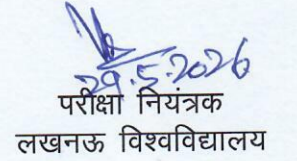 29.5.2026
परीक्षा नियंत्रक
लखनऊ विश्वविद्यालय